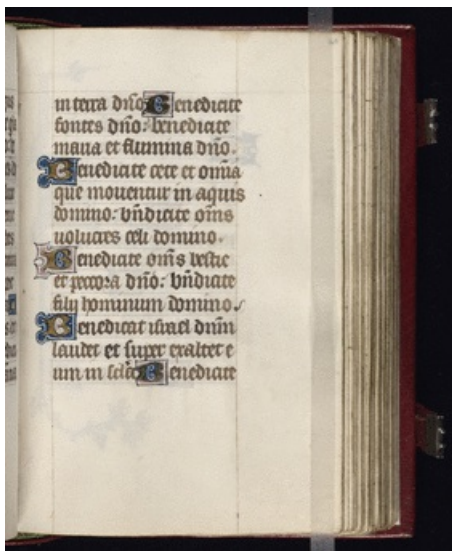 in terra dño Benedicite
fontes dño: benedicite
maria et flumina dño.
Benedicite cete et omía
que mouentur in aquis
domino: bñdicite oms̃
uolucres celi domino.
Benedicite oms̃ bestie
et pecora dño: bñdicite
filij hominum domino.
Benedicat israel dnm̃
laudet et super exaltet e
um in sclã Benedicite